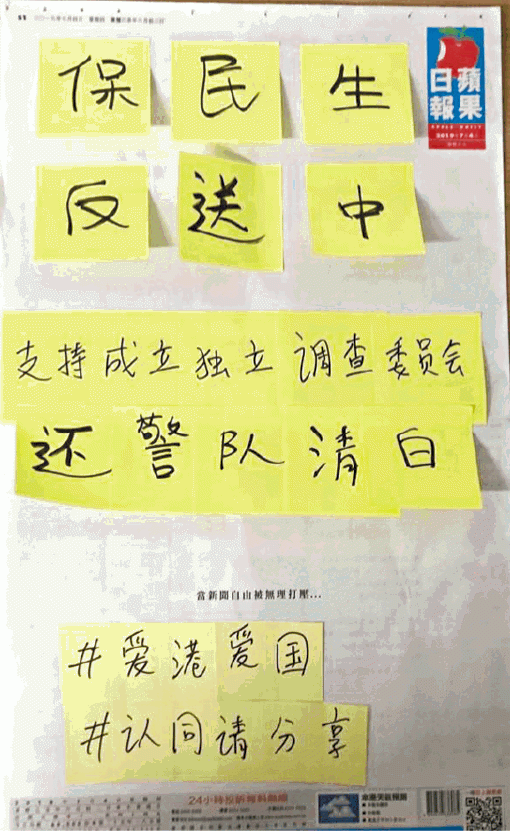 蘋果
日報
APPLE DAILY
保民生
反送中
支持成立独立调查委员会
还警队清白
當新聞自由被無理打壓...
#爱港爱国
#认同请分享
24小時投訴報料熱線